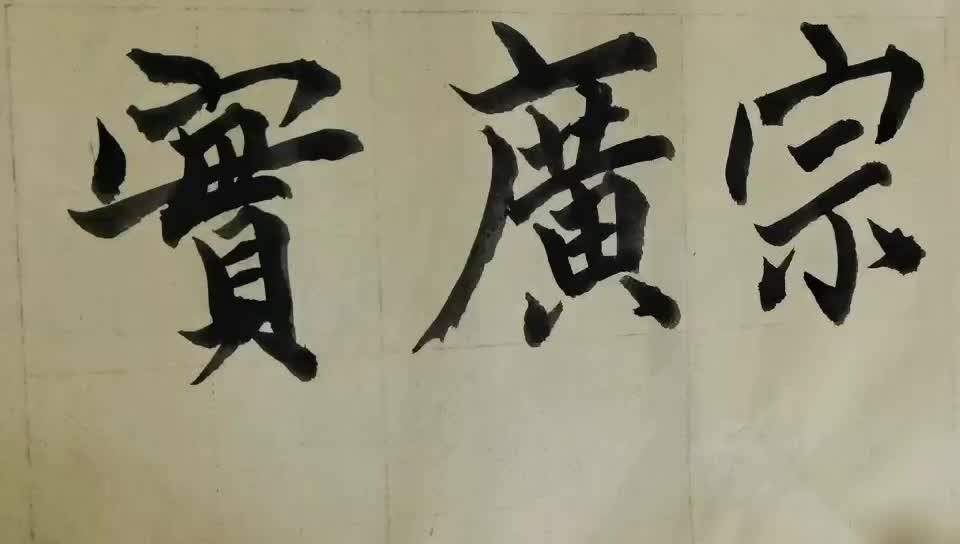 宗廣實